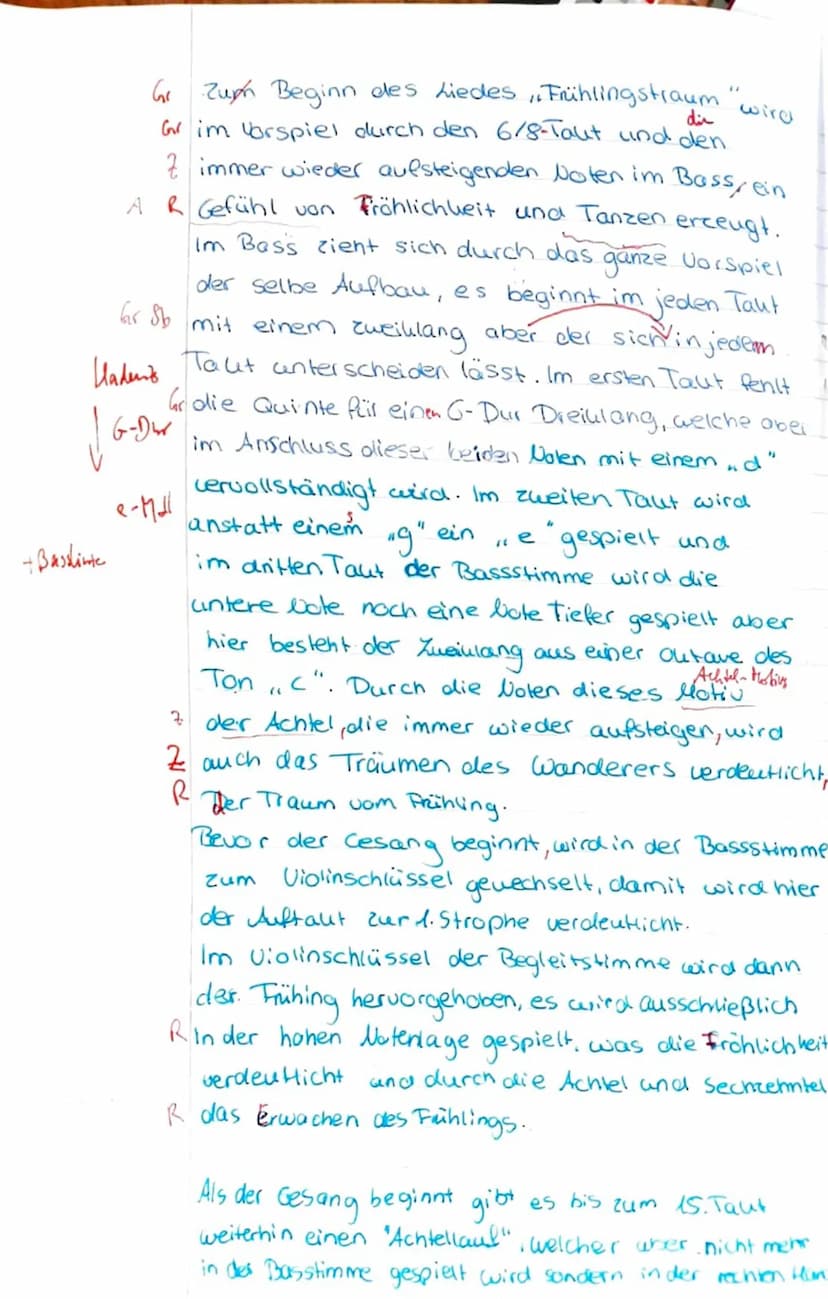 Gr Zum Beginn des Liedes „Frühlingstraum" wird
die
Gr im Vorspiel durch den 6/8-Takt und den
Z immer wieder aufsteigenden Noten im Bass, ein
A R Gefühl von Fröhlichkeit und Tanzen erzeugt.
Im Bass zieht sich durch das ganze Vorspiel
der selbe Aufbau, es beginnt im jeden Takt
Gr Sb mit einem Zweiklang aber der sich in jedem
Kadenz Takt unterscheiden lässt. Im ersten Takt fehlt
Gr die Quinte für einen G-Dur Dreiklang, welche aber
G-Dur im Anschluss dieser beiden Noten mit einem „d"
vervollständigt wird. Im zweiten Takt wird
e-Moll anstatt eines „g" ein „e" gespielt und
+ Basslinie im dritten Takt der Bassstimme wird die
untere Note noch eine Note Tiefer gespielt aber
hier besteht der Zweiklang aus einer Oktave des
Achtel-Motivs
Ton „c". Durch die Noten dieses Motiv
Z der Achtel, die immer wieder aufsteigen, wird
Z auch das Träumen des Wanderers verdeutlicht,
R Der Traum vom Frühling.
Bevor der Gesang beginnt, wird in der Bassstimme
zum Violinschlüssel gewechselt, damit wird hier
der Auftakt zur 1. Strophe verdeutlicht.
Im Violinschlüssel der Begleitstimme wird dann
der Frühing hervorgehoben, es wird ausschließlich
R In der hohen Notenlage gespielt, was die Fröhlichkeit
verdeutlicht und durch die Achtel und Sechzehntel
R das Erwachen des Frühlings.
Als der Gesang beginnt gibt es bis zum 15. Takt
weiterhin einen "Achtellauf", welcher aber nicht mehr
in der Basstimme gespielt wird sondern in der rechten